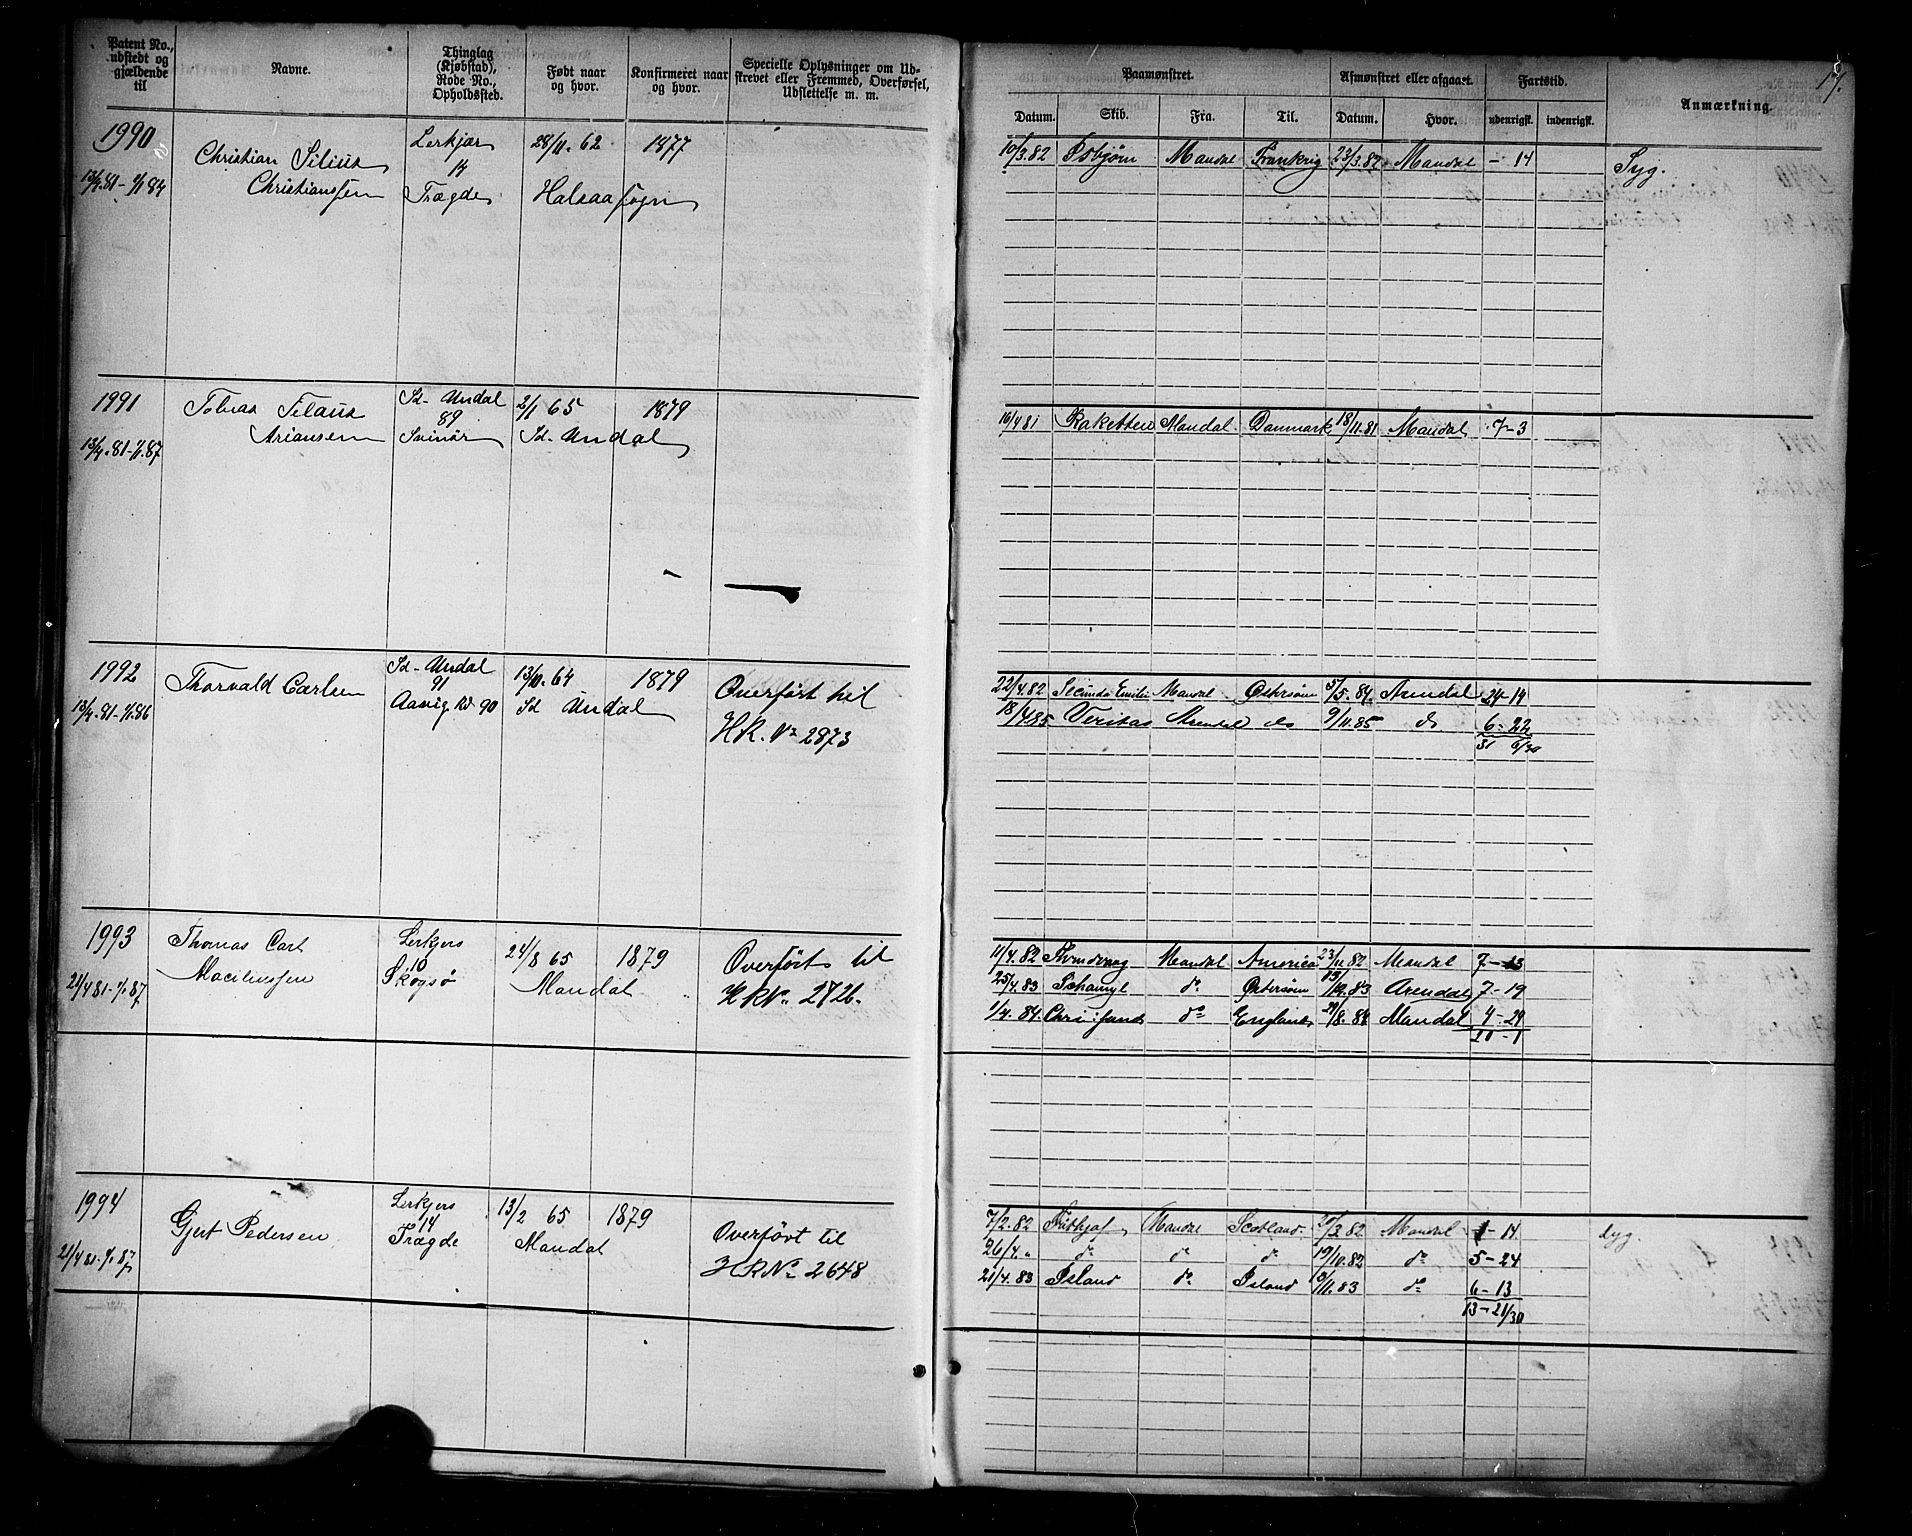 Patent No., udstedt og gjældende til
Navne.
Thinglag (Kjøbstad), Rode No., Opholdssted.
Født naar og hvor.
Konfirmeret naar og hvor.
Specielle Oplysninger om Udskrevet eller Fremmed, Overførsel, Udslettelse m. m.
Paamønstret.
Afmønstret eller afgaaet.
Fartstid.
Anmærkning.
17.
Datum. Skib. Fra. Til. Datum. Hvor. udenrigsk. indenrigsk.
1990 Lerkjær 28/11. 62 1877
Christian Silius 14
13/4.81-1/1 84 Christianssen Trægde Halsaa sogn
10/3.82 Isbjørn Mandal Frankrig 23/3.82 Mandal - 14 Syg.
1991 Tobias Tilaus Sd- Undal 2/1 65 1879
89
13/4.81-1/1.87 Ariansen Svinør Sd- Undal
19/4 81 Raketten Mandal Danmark 18/11.81 Mandal 7-3
1992 Sd- Undal 13/10. 64 1879
Thorvald Carlsen 91 Overført til
13/4.81-1/1.86 Aavig Rd 90 Sd Undal HR. No 2873
22/4.82 Secunda Emilie Mandal Østersøen 5/5.84 Arendal 24-14
18/4 85 Veritas Arendal do 9/11.85 do 6-22
31 6/30
1993 Thomas Carl Lerkjers 24/8 65 1879 Overført til
10
21/4 81-1/1.87 Skogsø Mandal HR No. 2726.
11/4.82 Mandal America 23/11 82 Mandal 7-13
25/4.83 Schamyl do Østersøen 83 Arendal 7-19
1/4.84. do England 29/8.84 Mandal 4-29
1994 Lerkjers 13/2 65 1879
14
Gjert Pedersen Trægde Mandal Overført til
21/4 81-1/1.87 HR No 2648
7/2.82 Frithjof Mandal Scotland 20/3.82 Mandal 1-14 Syg.
26/4. " do do do 19/10.82 do 5-24
21/4.83 Island do Island 3/11.83 do 6-13
13-21/30